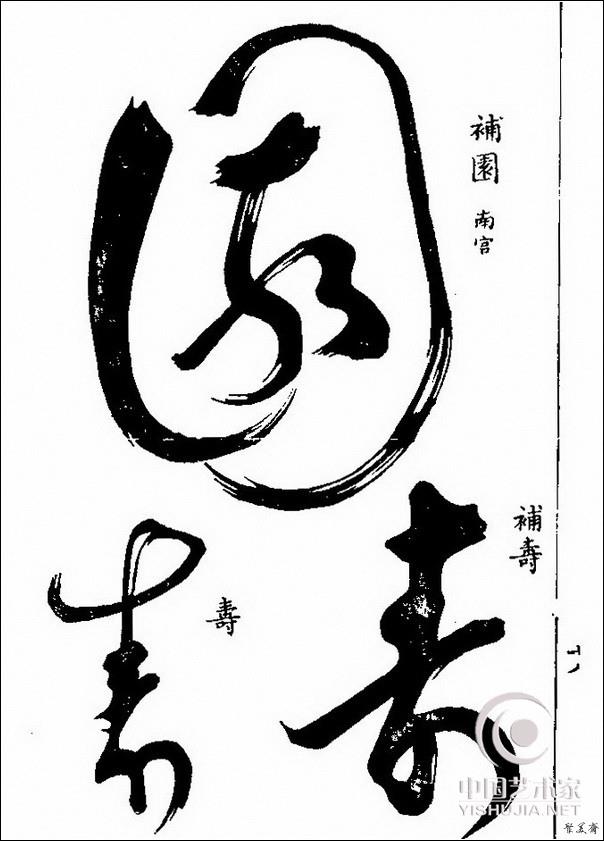 補園 南宫
園
補壽
壽
壽
壽
十八
中国艺术家
YISHUJIA.NET